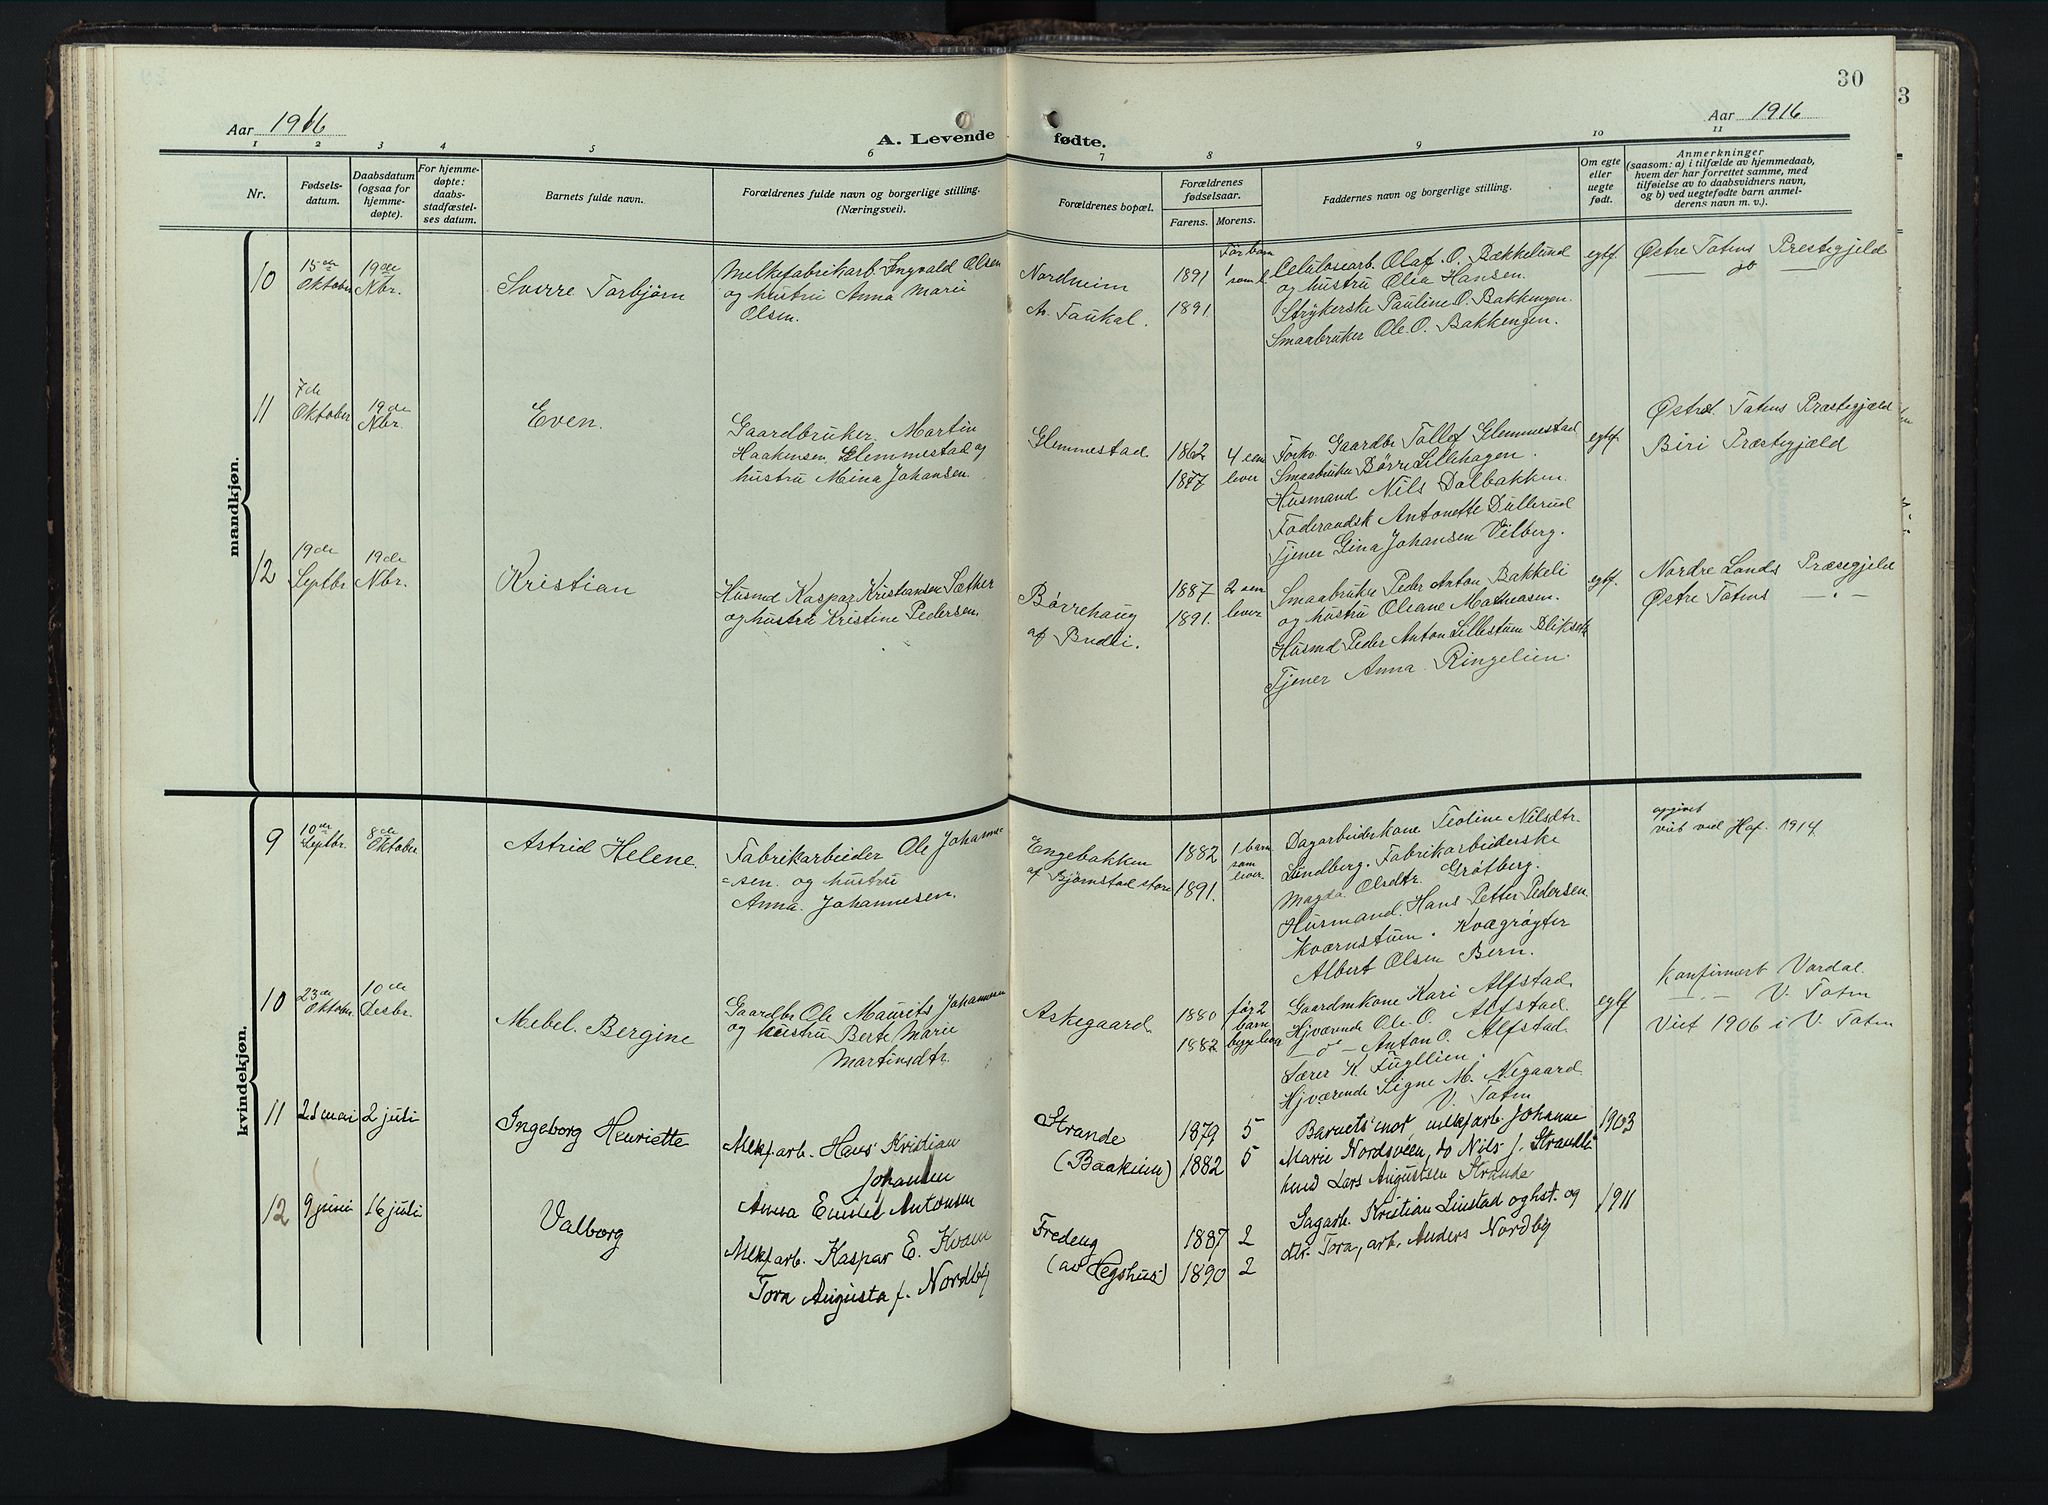 30
Aar 1916
Aar 1916
A. Levende fødte.
1 2 3 4 5 6 7 8 9 10 11
Nr.
Fødsels-
datum.
Daabsdatum
(ogsaa for
hjemme-
døpte).
For hjemme-
døpte:
daabs-
stadfæstel-
ses datum.
Barnets fulde navn.
Forældrenes fulde navn og borgerlige stilling.
(Næringsvei).
Forældrenes bopæl.
Forældrenes
fødselsaar.
Farens. Morens.
Faddernes navn og borgerlige stilling.
Om egte
eller
uegte
født.
Anmerkninger
(saasom: a) i tilfælde av hjemmedaab,
hvem der har forrettet samme, med
tilføielse av to daabsvidners navn,
og b) ved uegtefødte barn anmel-
derens navn m. v.).
mandkjøn.
10
15de
Oktober
19de
Nbr.
Sverre Torbjørn
Melkefabrikarb. Ingvald Olsen
og hustru Anna Marie
Olsen.
Nordheim
Av. Taukal.
1891
1891
Før barn
1
som l.
Celulosearb. Olaf. O. Bækkelund
og hustru Olia Hansen.
Strykerske Pauline O. Bakkengen.
Smaabruker Ole. O. Bakkengen.
egtf.
Østre Totens Prestegjeld
— do —
11
7de
Oktober
19de
Nbr.
Even.
Gaardbruker. Martin
Haakensen Glemmestad og
hustru Mina Johansen.
Glemmestad.
1862
1877
4 som
lever
Forhv. Gaardbr Tollef Glemmestad
Smaabruker Børre Lillehagen.
Husmand Nils Dalbakken.
Føderaadsk Antonette Dullerud
Tjener Gina Johansen Vilberg.
egtf.
Østre Totens Præstegjæld
Biri Præstegjæld
12
19de
Septbr.
19de
Nbr.
Kristian
Husmd Kaspar Kristiansen Sæther
og hustru Kristine Pedersen.
Børrehaug
af Budli.
1887
1891.
2 som
lever
Smaabruker Peder Anton Bakkeli
og hustru Oleane Mathiasen.
Husmd Peder Anton Lillestuen Bliksek
Tjener Anna Ringelien.
egtf.
Nordre Lands Præsegjeld
Østre Totens — " —
kvindekjøn.
9
10de
Septbr.
8de
Oktober
Astrid Helene.
Fabrikarbeider Ole Johanne-
=sen. og hustru
Anna. Johannesen.
Engebakken
af Bjørnstad store
1882
1891.
1 barn
som
lever.
Dagarbeiderkone Teoline Nilsdtr.
Lundberg. Fabrikarbeiderske
Magda Olsdtr. Grøtberg.
Husmand. Hans Petter Pedersen
Kværnstuen. Kvægrøgter
Albert Olsen Bern.
opgivet
viet ved Hof. 1914.
10
23de
Oktober
10de
Desbr.
Mebel. Bergine
Gaardbr Ole Maurits Johannesen
og hustru Berte Marie
Martinsdtr.
Askegaard
1880
1882
før 2
barn
begge lever
Gaardmkone Kari Alfstad
Hjværende Ole. O. Alfstad.
— o — Anton O. Alfstad
Lærer K. Fugllien.
Hjværende Signe M. Negaard
V. Toten
egtf
Konfirmert Vardal.
— " — V. Toten
Viet 1906 i V. Toten
11
28 mai
2 juli
Ingeborg Henriette
Melkf.arb. Hans Kristian
Johansen
Anna Emilie Antonsen
Strande
(Baakinn)
1879
1882
5
5
Barnets mor melkfarb. Johanne
Marie Nordsveen, do Nils J. Strandli
hmd Lars Augustsen Strande
1903
12
9 juni
16 juli
Valborg
Melkf.arb. Kaspar E. Kvam
Tora Augusta f. Nordby
Fredeng
(av Hegshus)
1887
1890
2
2
Sagarb. Kristian Linstad og hst. og
dtr. Tora, arb. Anders Nordby
1911